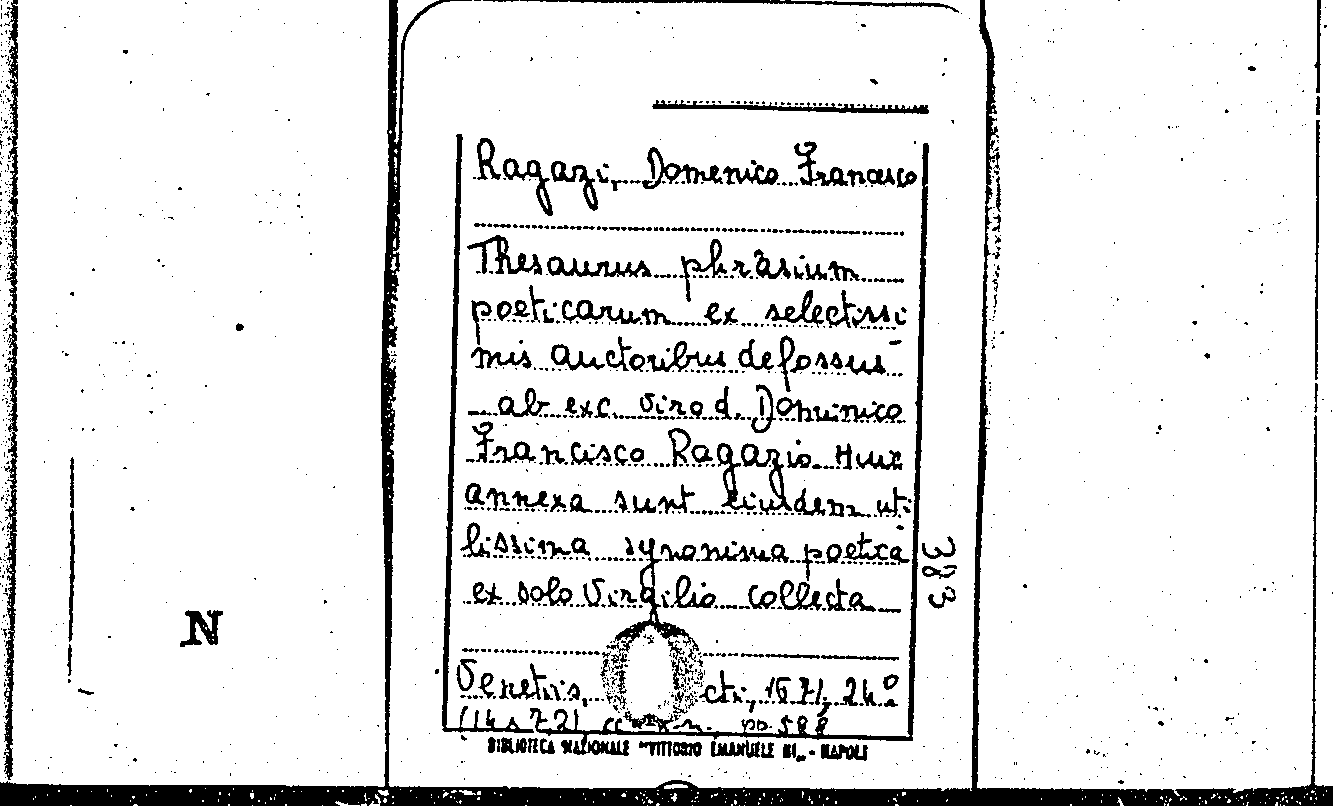 Ragazi, Domenico Francesco
Thesaurus phrasium
poeticarum ex selectissi
mis auctoribus defossus
ab exc. viro d. Dominico
Francisco Ragazio. Huic
annexa sunt eiusdem uti
lissima synonima poetica
ex solo Virgilio collecta
Venetiis, cti, 1671, 24º
pp. 588
383
N
BIBLIOTECA NAZIONALE "VITTORIO EMANUELE III„ - NAPOLI